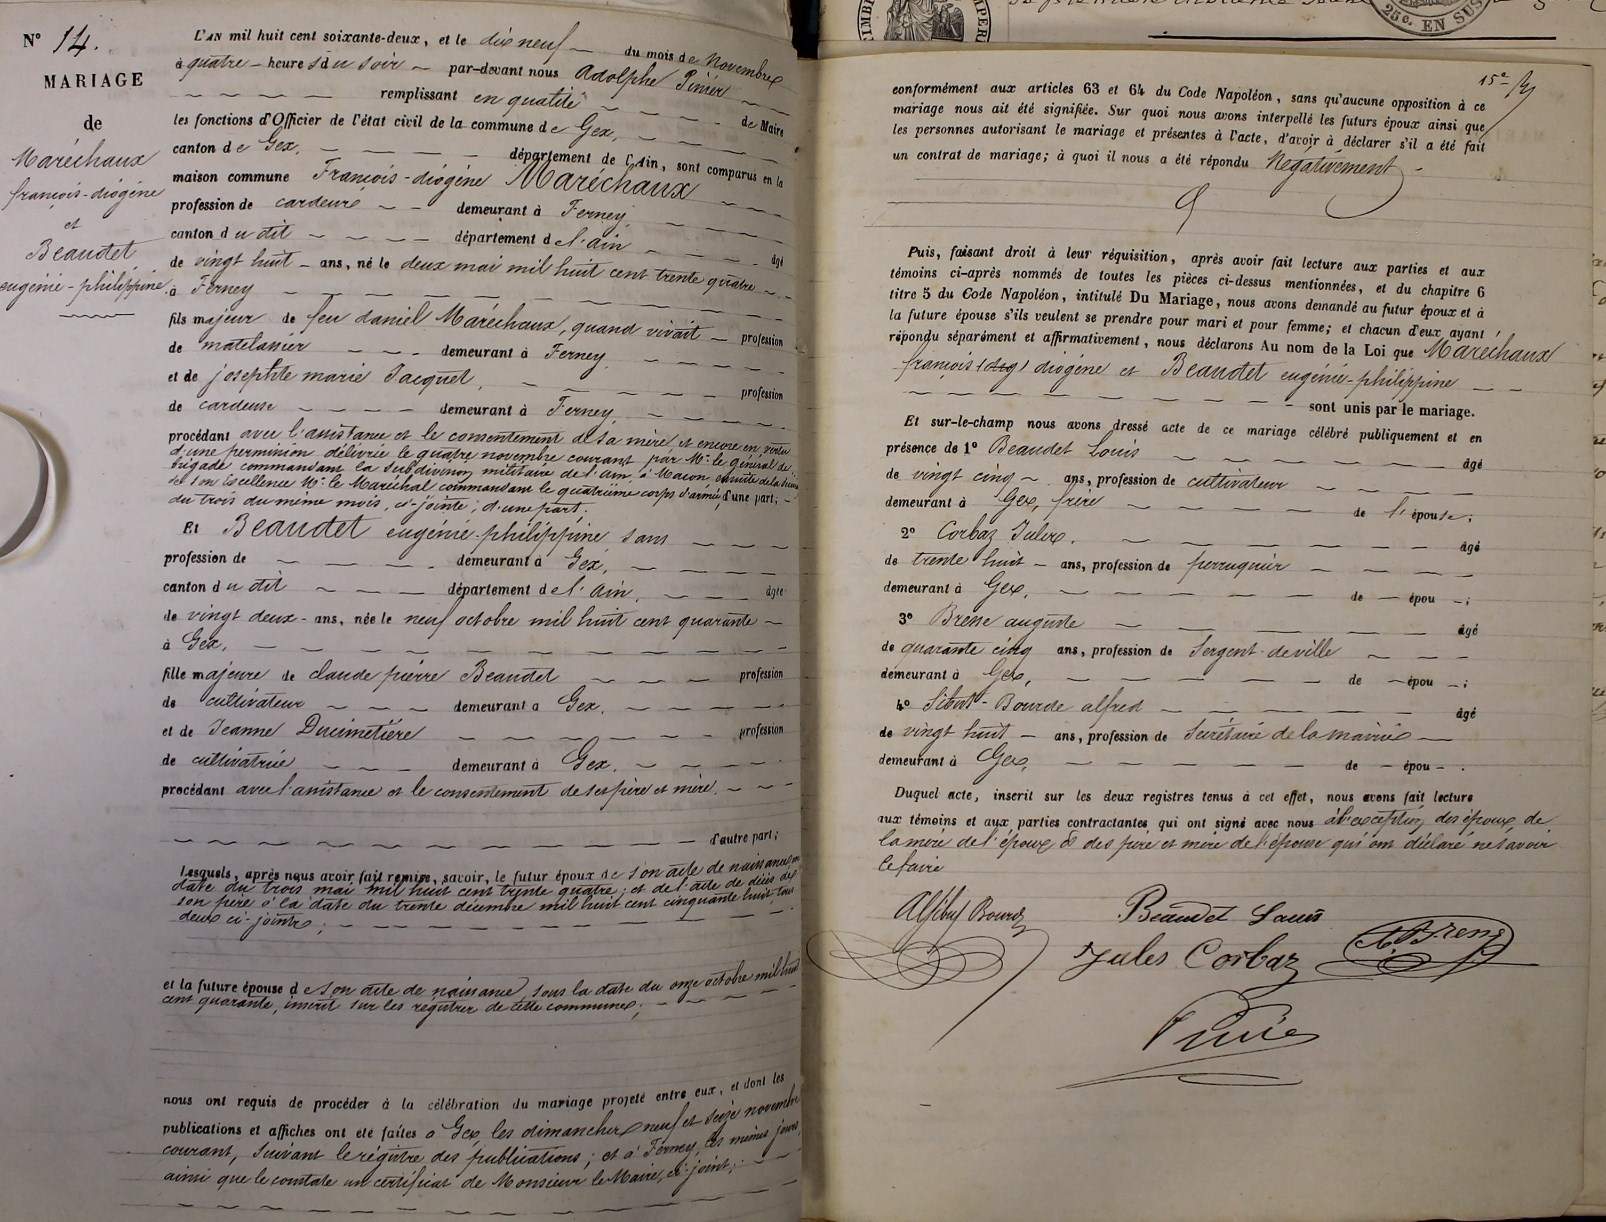 N° 14.
MARIAGE
de
Maréchaux
françois-diogène
et
Beaudet
eugénie-philippine
L'AN mil huit cent soixante-deux, et le dix neuf du mois de Novembre
à quatre heures du soir par-devant nous Adolphe
remplissant en qualité de Maire
les fonctions d'Officier de l'état civil de la commune de Gex,
canton de Gex, département de l'Ain, sont comparus en la
maison commune François-diogène Maréchaux
profession de cardeur demeurant à Ferney
canton du dit département de l'ain âgé
de vingt huit ans, né le deux mai mil huit cent trente quatre
à Ferney
fils majeur de feu daniel Maréchaux, quand vivait profession
de matelassier demeurant à Ferney.
et de josephte marie Jacquet, profession
de cardeuse demeurant à Ferney
procédant avec l'assistance et le consentement de sa mère et encore en vertu
d'une permission délivrée le quatre novembre courant par Mr. le général de
brigade commandant la subdivision militaire de l'ain, à Macon, ensuite de la
de son Excellence Mr. le Maréchal commandant le quatrième corps d'armée, d'une part;
du trois du même mois, ci-jointe; d'une part.
Et Beaudet eugénie-philippine sans
profession de demeurant à Gex,
canton du dit département de l'ain. âgée
de vingt deux ans, née le neuf octobre mil huit cent quarante
à Gex,
fille majeure de claude pierre Beaudet profession
de cultivateur demeurant à Gex,
et de Jeanne Ducimetière profession
de cultivatrice demeurant à Gex.
procédant avec l'assistance et le consentement de ses père et mère.
d'autre part;
Lesquels, après nous avoir fait remise, savoir, le futur époux de son acte de naissance en
date du trois mai mil huit cent trente quatre; et de l'acte de décès de
son père à la date du trente décembre mil huit cent cinquante huit, tous
deux ci-joints;
et la future épouse de son acte de naissance, sous la date du onze octobre mil huit
cent quarante, inscrit sur les registres de cette commune;
nous ont requis de procéder à la célébration du mariage projeté entre eux, et dont les
publications et affiches ont été faites à Gex, les dimanches neuf et seize novembre
courant, suivant le régistre des publications; et à Ferney, les mêmes jours,
ainsi que le constate un certificat de Monsieur le Maire, ci-joint;
25c. EN SUS
15e
conformément aux articles 63 et 64 du Code Napoléon, sans qu'aucune opposition à ce
mariage nous ait été signifiée. Sur quoi nous avons interpellé les futurs époux ainsi que
les personnes autorisant le mariage et présentes à l'acte, d'avoir à déclarer s'il a été fait
un contrat de mariage; à quoi il nous a été répondu Négativement
Puis, faisant droit à leur réquisition, après avoir fait lecture aux parties et aux
témoins ci-après nommés de toutes les pièces ci-dessus mentionnées, et du chapitre 6
titre 5 du Code Napoléon, intitulé Du Mariage, nous avons demandé au futur époux et à
la future épouse s'ils veulent se prendre pour mari et pour femme; et chacun d'eux ayant
répondu séparément et affirmativement, nous déclarons Au nom de la Loi que Maréchaux
françois diogène et Beaudet eugénie-philippine
sont unis par le mariage.
Et sur-le-champ nous avons dressé acte de ce mariage célébré publiquement et en
présence de 1° Beaudet Louis âgé
de vingt cinq ans, profession de cultivateur
demeurant à Gex, frère de l'épouse;
2° Corbaz Jules. âgé
de trente huit ans, profession de perruquier
demeurant à Gex, de épou ;
3° Bresse auguste âgé
de quarante cinq ans, profession de Sergent de ville
demeurant à Gex, de épou ;
4° Bourde alfred âgé
de vingt huit ans, profession de Secrétaire de la mairie
demeurant à Gex, de épou .
Duquel acte, inscrit sur les deux registres tenus à cet effet, nous avons fait lecture
aux témoins et aux parties contractantes, qui ont signé avec nous à l'exception des époux, de
la mère de l'époux & des père et mère de l'épouse qui ont déclaré ne savoir
le faire
Beaudet Louis
Jules Corbaz